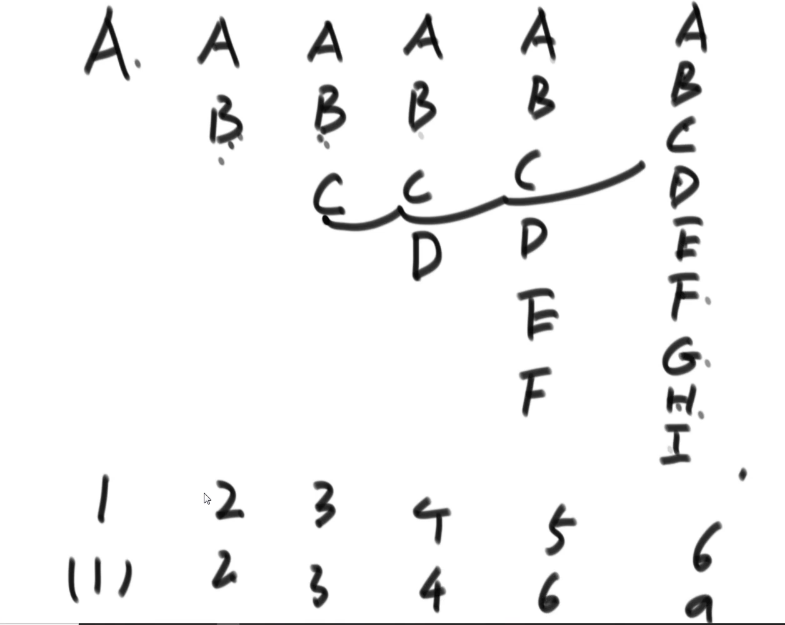 A. A A A A A
B B B B B
C C C C
D D D
E E
F F
G
H
I
1 2 3 4 5 6
(1) 2 3 4 6 9